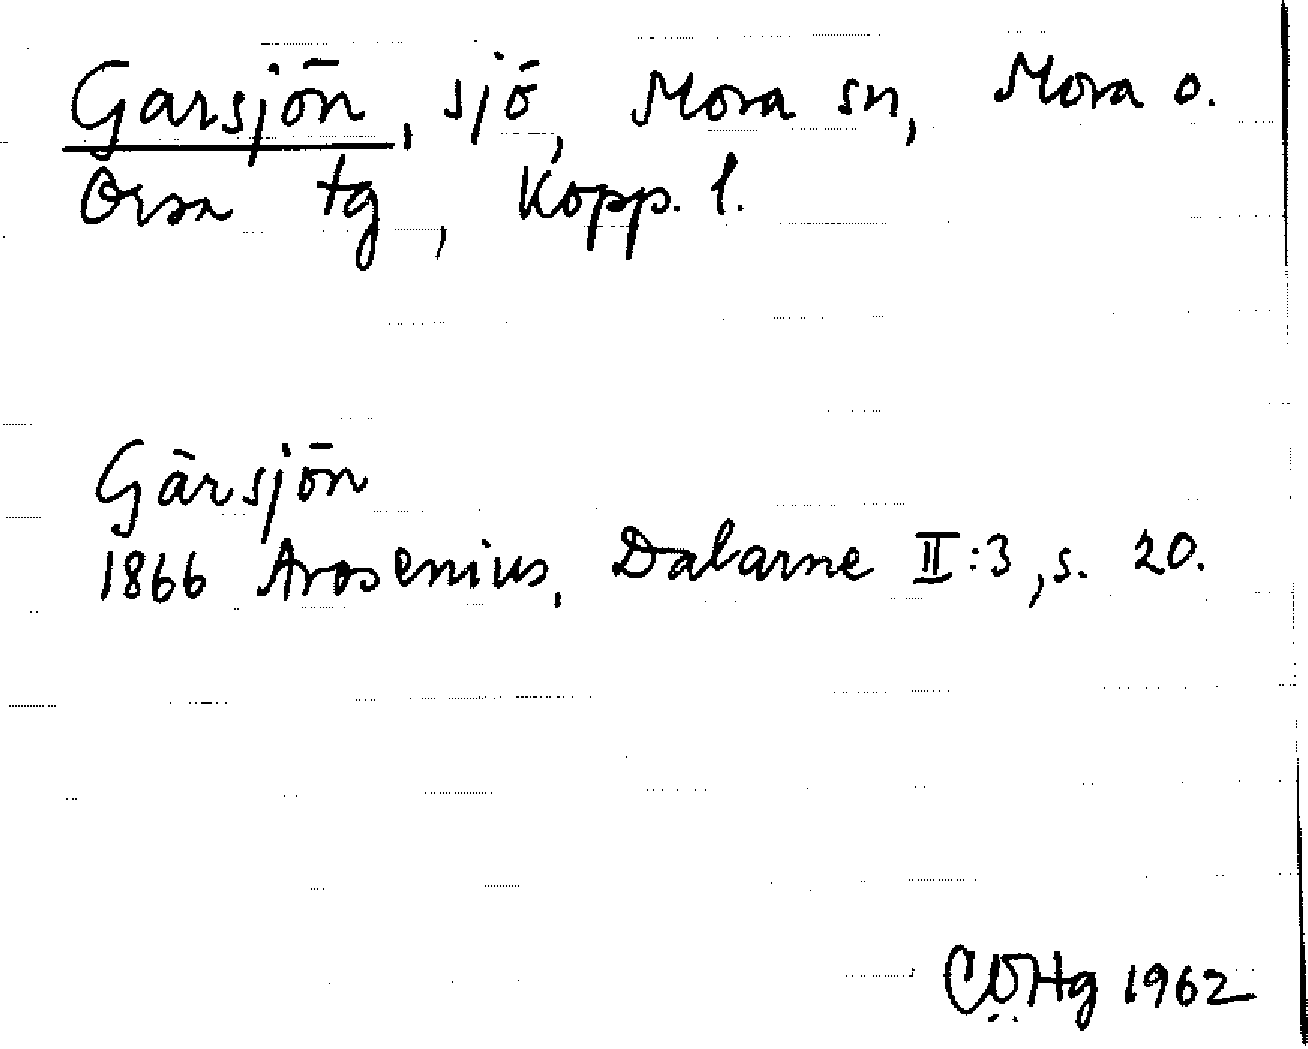 Garsjön, sjö, Mora sn, Mora o.
Orsa tg, Kopp. l.
Gärsjön
1866 Arosenius, Dalarne II:3, s. 20.
CÖHg 1962